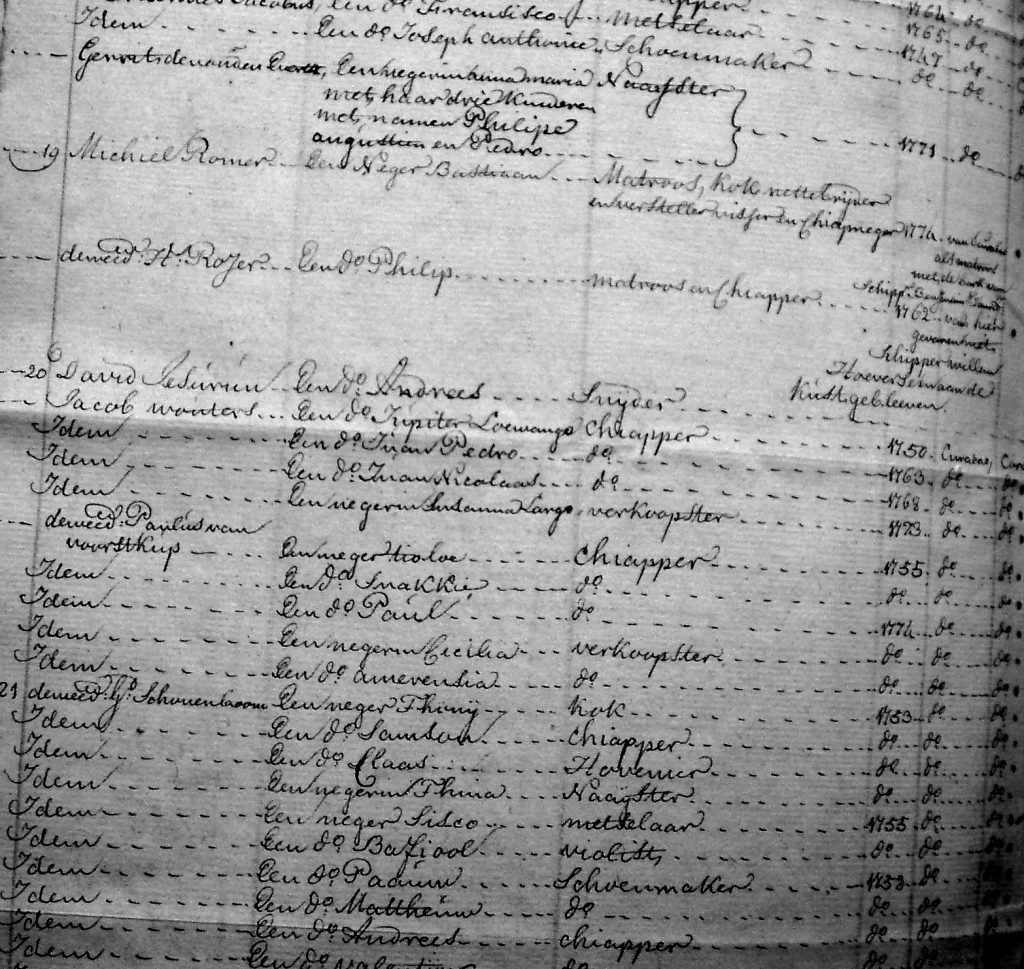 Jacobus, Een do Fransisco metselaar 1764 do
Idem Een do Joseph anthonie Schoenmaker 1765 do
Gerrits de vouden Een negerin anna maria Naayster 1747 do
met haar drie Kinderen do do
met namen Philipe
augustien en Pedro 1771 do
19 Michiel Romer Een Neger Bastiaan Matroos, Kok nettebryder
en versteller visser en Chiapneger 1774 van Curacao
als matroos
met de bark van
Schipr.
de wed. H. Rojer Een do Philip matroos en Chiapper 1762 van hier
gevaren met
Schipper willem
Hoevertsen aan de
Kust gebleeven
20 David Jesurun Een do Andrees Snyder
Jacob wouters Een do Jupiter Loewango Chiapper 1750 Curacao,
Idem Een do Juan Pedro do 1763 do
Idem Een do Juan Nicolaas do 1768 do
Idem Een negerin Susanna Largo verkoopster 1773 do
de wed. Paulus van
voorst Kup Een neger tioloe chiapper 1755 do
Idem Een do Snakkie do do do
Idem Een do Paul do 1774 do
Idem Een negerin Cicilia verkoopster do do
Idem Een do amerensia do do do
21 de wed. Gs. Schouenboom Een neger Thony Kok 1753 do
Idem Een do Samson chiapper do do
Idem Een do Claas Hovenier do do
Idem Een negerin Thina Naayster do do
Idem Een neger Sisco metselaar 1755 do
Idem Een do Bazjool violist do do
Idem Een do Paauw Schoenmaker 1753 do
Idem Een do Mattheuw do do do
Idem Een do Andrees chiapper do do
Idem Een do do